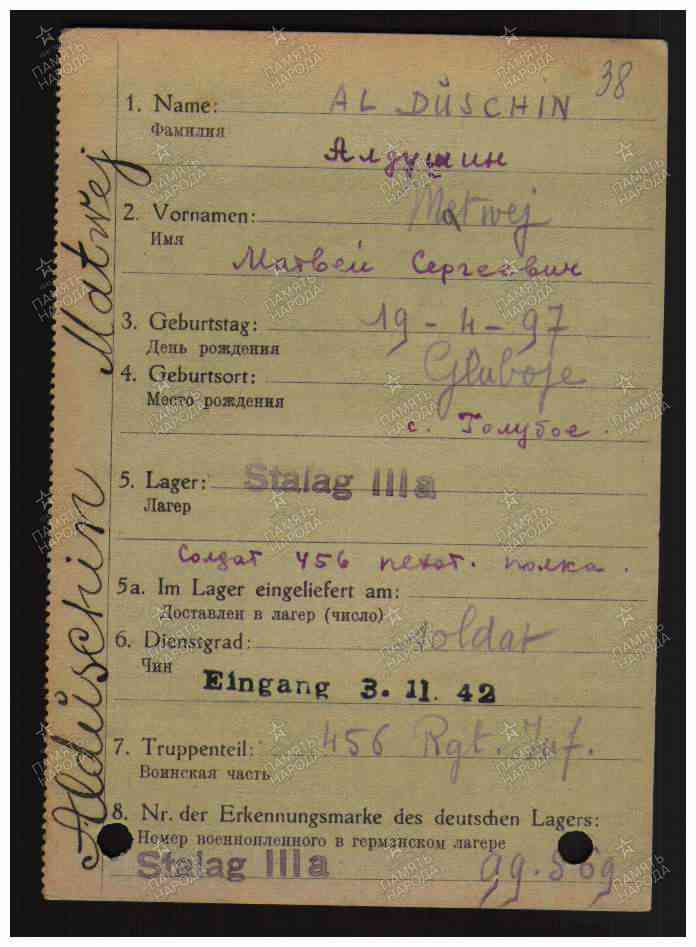 38
1. Name: AL DÜSCHIN
Фамилия
Алдушин
2. Vornamen: Matwej
Имя
Матвей Сергеевич
3. Geburtstag: 19 - 4 - 97
День рождения
4. Geburtsort: Gluboje
Место рождения
с. Голубое.
5. Lager: Stalag IIIa
Лагер
Солдат 456 пехот. полка.
5a. Im Lager eingeliefert am:
Доставлен в лагер (число)
6. Dienstgrad: Soldat
Чин
Eingang 3. 11. 42
7. Truppenteil: 456 Rgt. Inf.
Воинская часть
8. Nr. der Erkennungsmarke des deutschen Lagers:
Номер военнопленного в германском лагере
Stalag IIIa 99.569
Aldüschin Matwej
ПАМЯТЬ НАРОДА